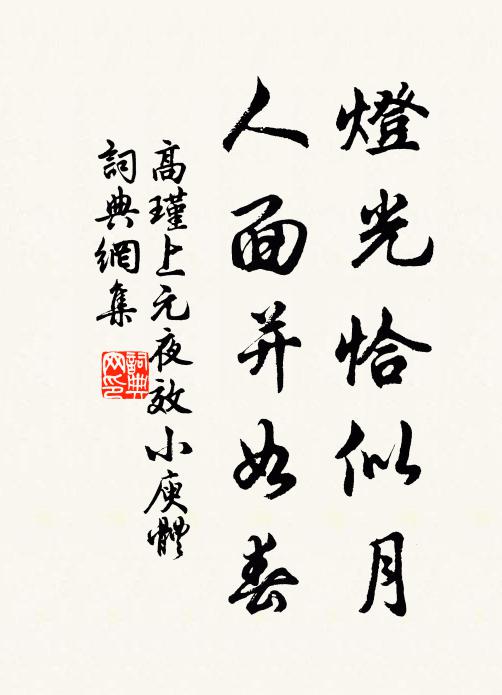 燈光恰似月
人面并如春
高瑾上元夜效小庾體
詞典網集
詞典網印